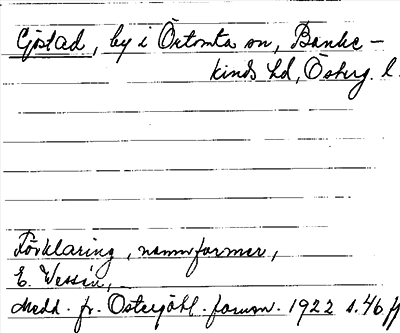 Gjöstad, by i Örtomta sn, Banke-
kinds hd, Österg. l.
Förklaring, namnformer,
E. Wessén,
Medd. fr. Östergötl. fornm. 1922 s. 46 f